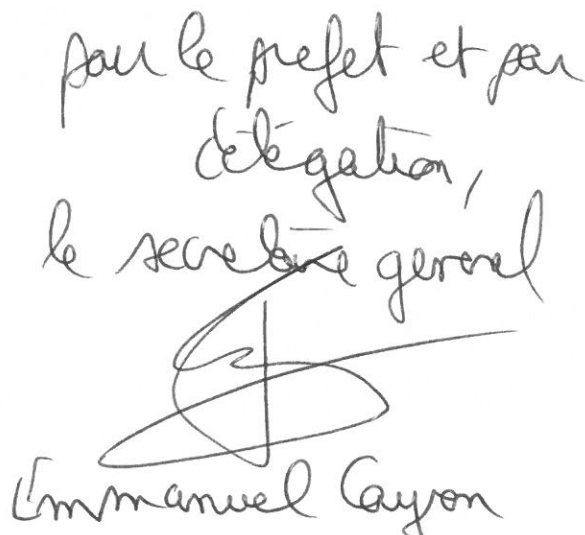 pour le prefet et par
délégation,
le secretaire general
Emmanuel Cayron